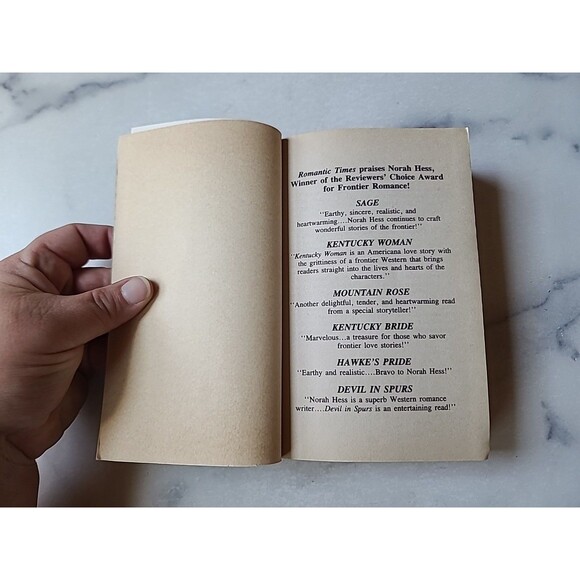 Romantic Times praises Norah Hess,
Winner of the Reviewers' Choice Award
for Frontier Romance!
SAGE
"Earthy, sincere, realistic, and
heartwarming....Norah Hess continues to craft
wonderful stories of the frontier!"
KENTUCKY WOMAN
"Kentucky Woman is an Americana love story with
the grittiness of a frontier Western that brings
readers straight into the lives and hearts of the
characters."
MOUNTAIN ROSE
"Another delightful, tender, and heartwarming read
from a special storyteller!"
KENTUCKY BRIDE
"Marvelous...a treasure for those who savor
frontier love stories!"
HAWKE'S PRIDE
"Earthy and realistic....Bravo to Norah Hess!"
DEVIL IN SPURS
"Norah Hess is a superb Western romance
writer....Devil in Spurs is an entertaining read!"